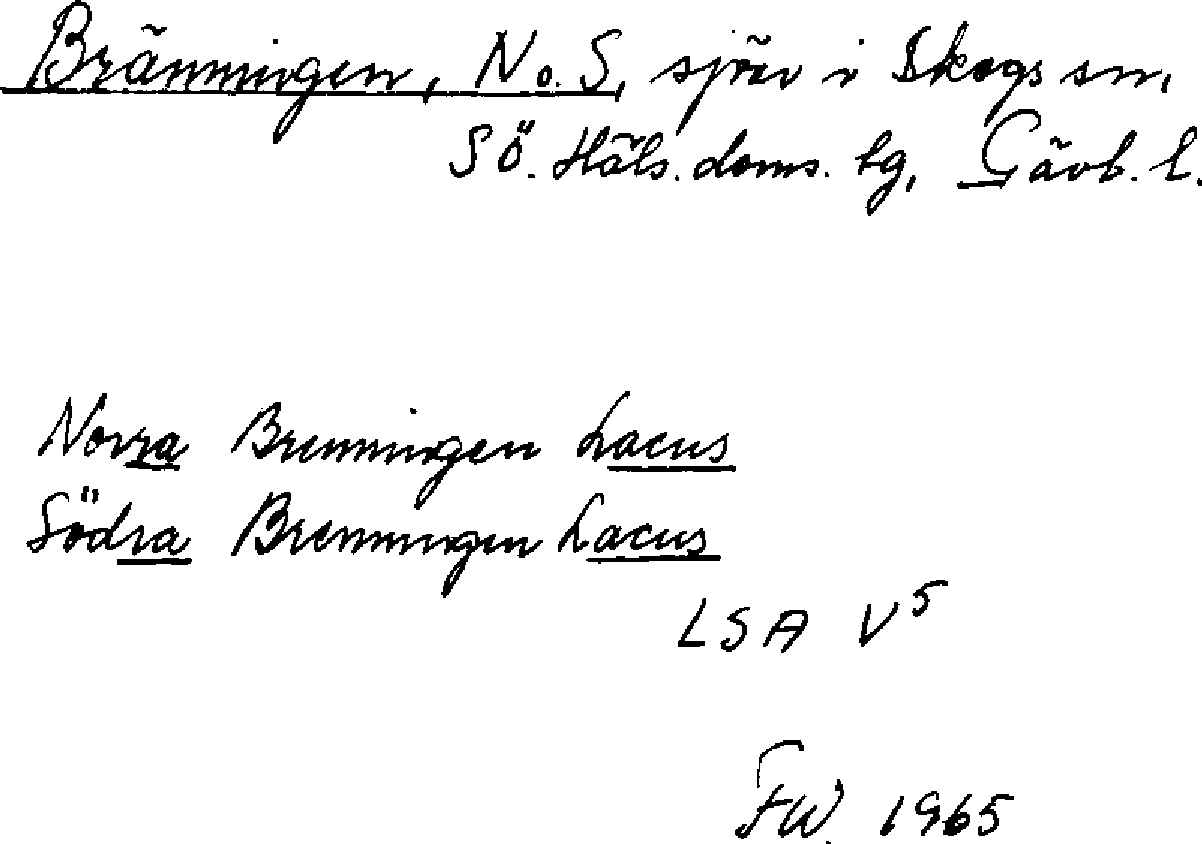 Bränningen, N o. S, sjöar i Skogs sn,
SÖ. Häls. doms. tg, Gävb. l.
Norra Brenningen Lacus
Södra Brenningen Lacus
LSA V5
FW. 1965